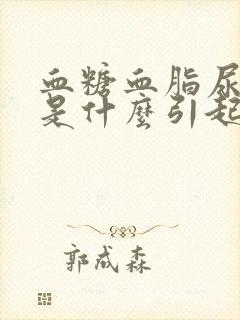 血糖血脂尿
是什麼引起
郭成森